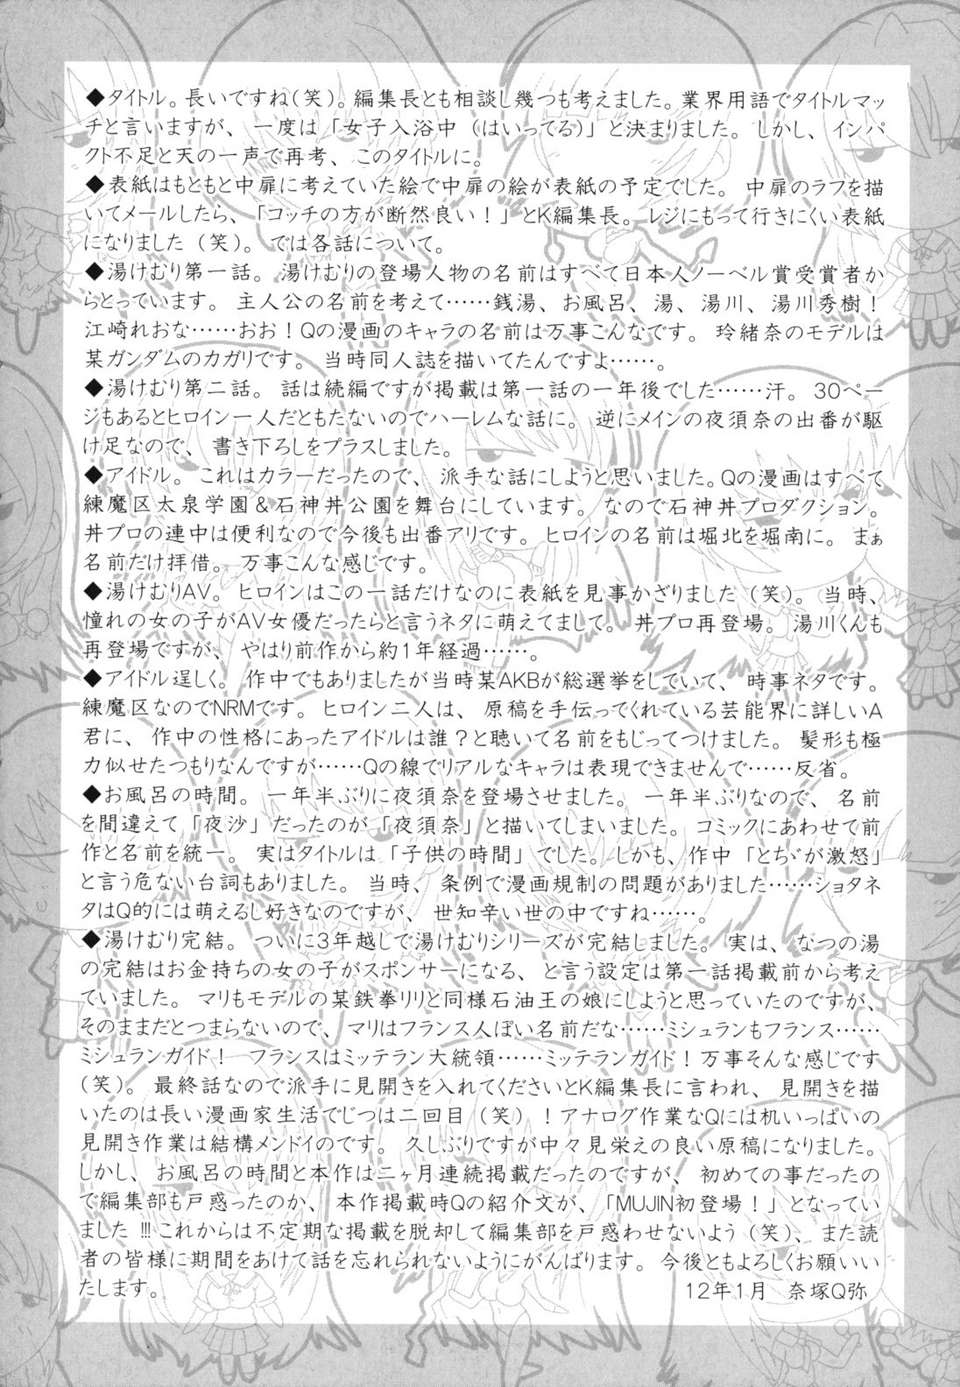 ◆タイトル。長いですね(笑)。編集長とも相談し幾つも考えました。業界用語でタイトルマッ
チと言いますが、一度は「女子入浴中（はいってる）」と決まりました。しかし、インパ
クト不足と天の一声で再考、このタイトルに。
◆表紙はもともと中扉に考えていた絵で中扉の絵が表紙の予定でした。中扉のラフを描
いてメールしたら、「コッチの方が断然良い！」とK編集長。レジにもって行きにくい表紙
になりました（笑）。では各話について。
◆湯けむり第一話。湯けむりの登場人物の名前はすべて日本人ノーベル賞受賞者か
らとっています。主人公の名前を考えて……銭湯、お風呂、湯、湯川、湯川秀樹！
江崎れおな……おお！Qの漫画のキャラの名前は万事こんなです。玲緒奈のモデルは
某ガンダムのカガリです。当時同人誌を描いてたんですよ……。
◆湯けむり第二話。話は続編ですが掲載は第一話の一年後でした……汗。30ペー
ジもあるとヒロイン一人だともたないのでハーレムな話に。逆にメインの夜須奈の出番が駆
け足なので、書き下ろしをプラスしました。
◆アイドル。これはカラーだったので、派手な話にしようと思いました。Qの漫画はすべて
練魔区太泉学園＆石神丼公園を舞台にしています。なので石神丼プロダクション。
丼プロの連中は便利なので今後も出番アリです。ヒロインの名前は堀北を堀南に。まぁ
名前だけ拝借。万事こんな感じです。
◆湯けむりAV。ヒロインはこの一話だけなのに表紙を見事かざりました（笑）。当時、
憧れの女の子がAV女優だったらと言うネタに萌えてまして。丼プロ再登場。湯川くんも
再登場ですが、やはり前作から約1年経過……。
◆アイドル逞しく。作中でもありましたが当時某AKBが総選挙をしていて、時事ネタです。
練魔区なのでNRMです。ヒロイン二人は、原稿を手伝ってくれている芸能界に詳しいA
君に、作中の性格にあったアイドルは誰？と聴いて名前をもじってつけました。髪形も極
力似せたつもりなんですが……Qの線でリアルなキャラは表現できませんで……反省。
◆お風呂の時間。一年半ぶりに夜須奈を登場させました。一年半ぶりなので、名前
を間違えて「夜沙」だったのが「夜須奈」と描いてしまいました。コミックにあわせて前
作と名前を統一。実はタイトルは「子供の時間」でした。しかも、作中「とぢゞが激怒」
と言う危ない台詞もありました。当時、条例で漫画規制の問題がありました……ショタネ
タはQ的には萌えるし好きなのですが、世知辛い世の中ですね……。
◆湯けむり完結。ついに3年越しで湯けむりシリーズが完結しました。実は、なつの湯
の完結はお金持ちの女の子がスポンサーになる、と言う設定は第一話掲載前から考え
ていました。マリもモデルの某鉄拳リリと同様石油王の娘にしようと思っていたのですが、
そのままだとつまらないので、マリはフランス人ぽい名前だな……ミシュランもフランス……
ミシュランガイド！　フランスはミッテラン大統領……ミッテランガイド！万事そんな感じです
（笑）。最終話なので派手に見開きを入れてくださいとK編集長に言われ、見開きを描
いたのは長い漫画家生活でじつは二回目（笑）！アナログ作業なQには机いっぱいの
見開き作業は結構メンドイのです。久しぶりですが中々見栄えの良い原稿になりました。
しかし、お風呂の時間と本作は二ヶ月連続掲載だったのですが、初めての事だったの
で編集部も戸惑ったのか、本作掲載時Qの紹介文が、「MUJIN初登場！」となってい
ました!!!これからは不定期な掲載を脱却して編集部を戸惑わせないよう（笑）、また読
者の皆様に期間をあけて話を忘れられないようにがんばります。今後ともよろしくお願いい
たします。　12年1月　奈塚Q弥